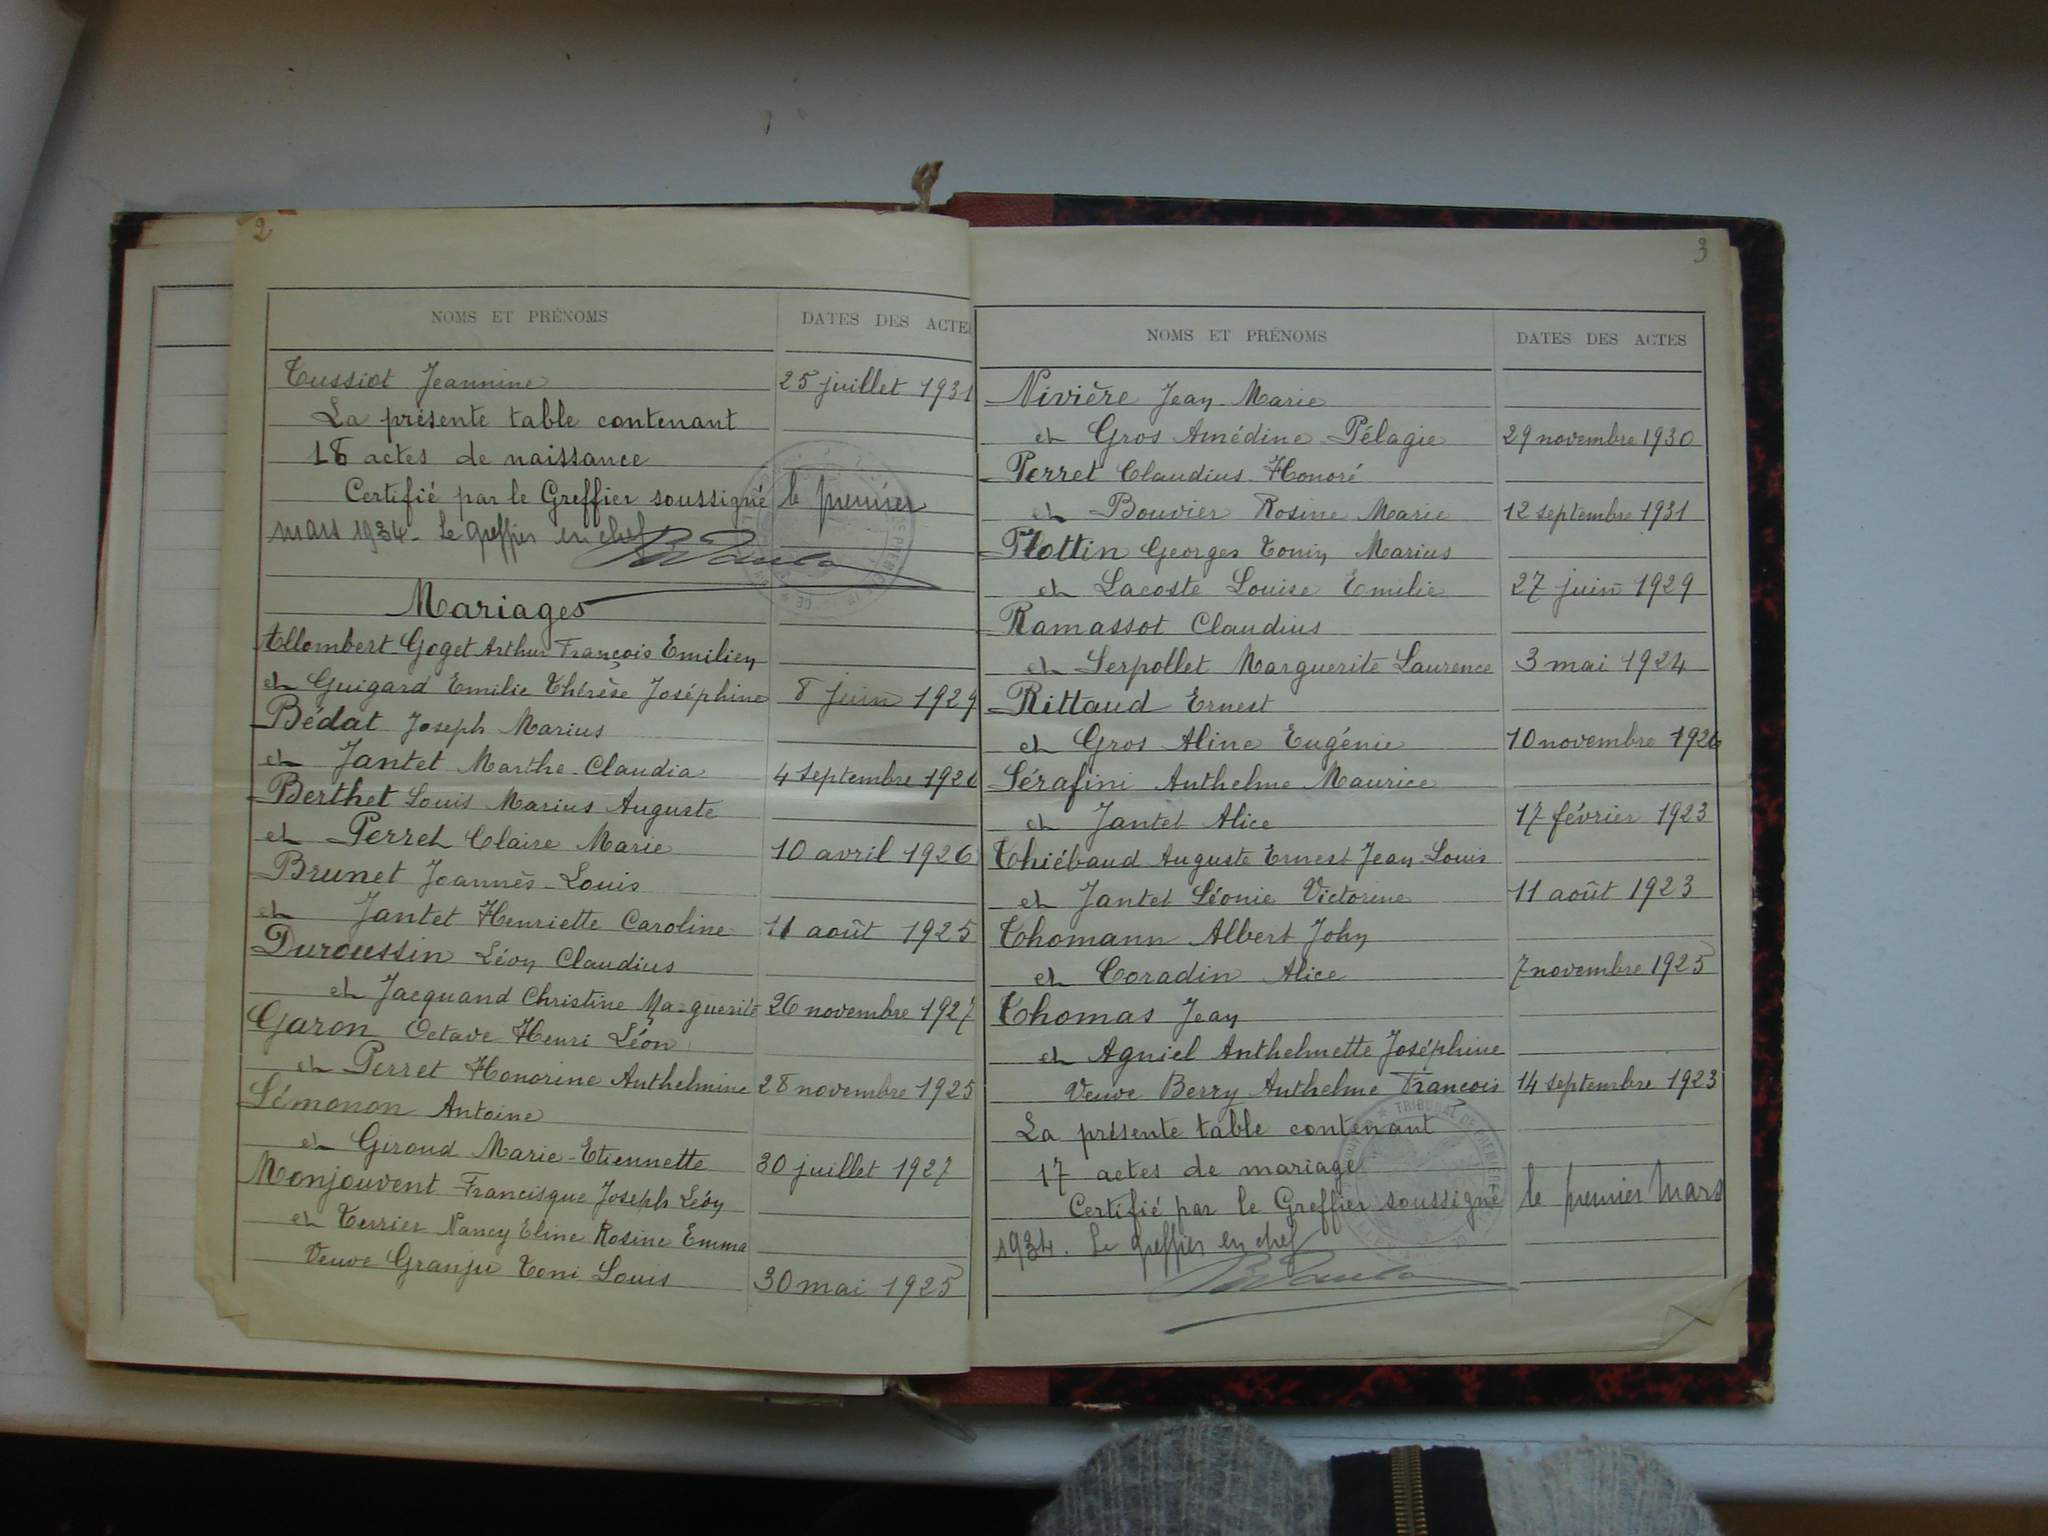 2
NOMS ET PRÉNOMS DATES DES ACTES
Tussiot Jeannine 25 juillet 1931
La présente table contenant
18 actes de naissance
Certifié par le Greffier soussigné le premier
mars 1934. Le greffier en chef
Mariages
Allombert-Goget Arthur François Emilien
et Guigard Emilie Thérèse Joséphine 8 juin 1929
Bédat Joseph Marius
et Jantet Marthe Claudia 4 septembre 1926
Berthet Louis Marius Auguste
et Perret Claire Marie 10 avril 1926
Brunet Joannès-Louis
et Jantet Henriette Caroline 11 août 1925
Duroussin Léon Claudius
et Jacquand Christine Marguerite 26 novembre 1927
Garon Octave Henri Léon
et Perret Honorine Anthelmine 28 novembre 1925
Lémonon Antoine
et Giroud Marie-Etiennette 30 juillet 1927
Monjouvent Francisque Joseph Léon
et Terrier Nancy Eline Rosine Emma
Veuve Granju Toni Louis 30 mai 1925
3
NOMS ET PRÉNOMS DATES DES ACTES
Nivière Jean-Marie
et Gros Amédine Pélagie 29 novembre 1930
Perret Claudius Honoré
et Bouvier Rosine Marie 12 septembre 1931
Plottin Georges Tonin Marius
et Lacoste Louise Emilie 27 juin 1929
Ramassot Claudius
et Serpollet Marguerite Laurence 3 mai 1924
Rittaud Ernest
et Gros Aline Eugénie 10 novembre 1926
Sérafini Anthelme Maurice
et Jantet Alice 17 février 1923
Thiébaud Auguste Ernest Jean Louis
et Jantet Léonie Victorine 11 août 1923
Thomann Albert John
et Coradin Alice 7 novembre 1925
Thomas Jean
et Agniel Anthelmette Joséphine
Veuve Berry Anthelme François 14 septembre 1923
La présente table contenant
17 actes de mariage
Certifié par le Greffier soussigné le premier mars
1934. Le greffier en chef
TRIBUNAL DE PREMIERE